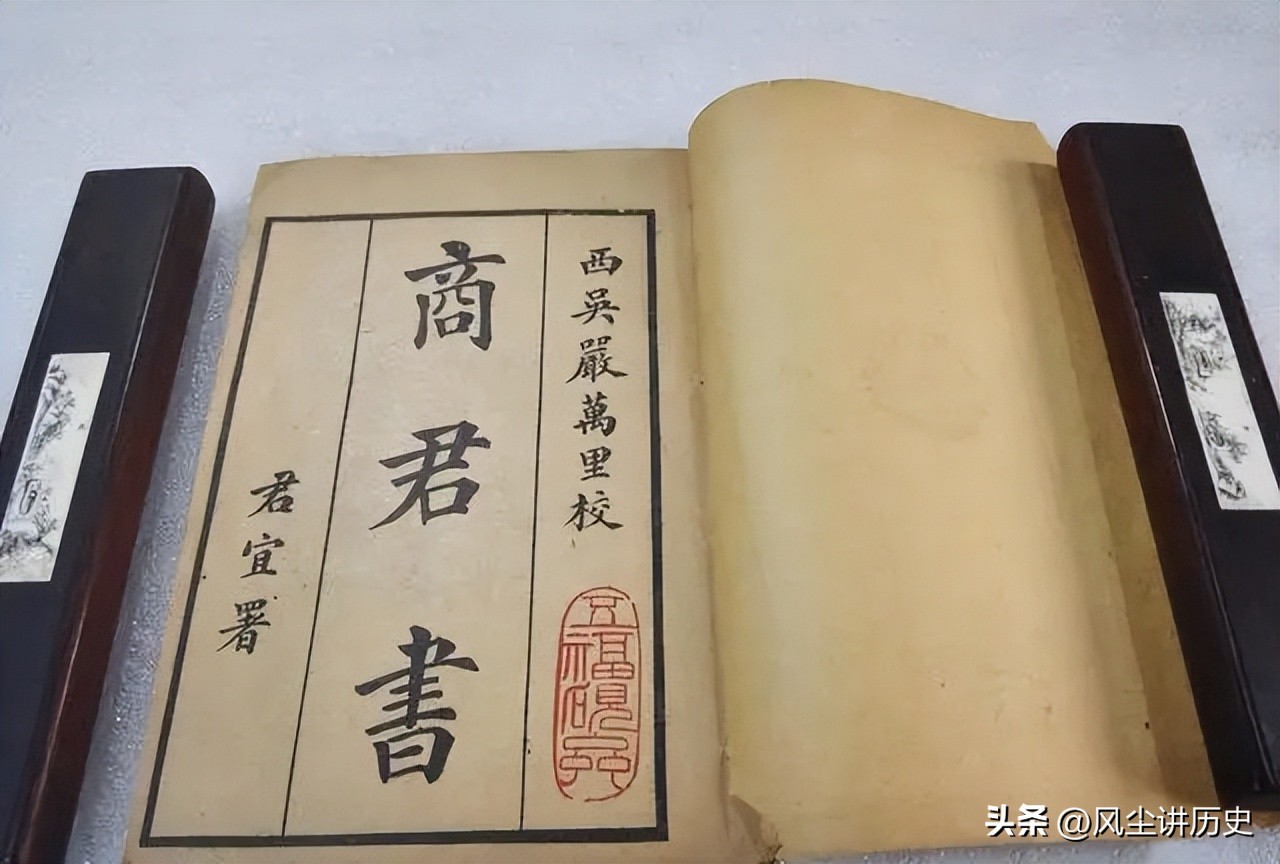 西吳嚴萬里校
商君書
君宜署
头条 @风尘讲历史